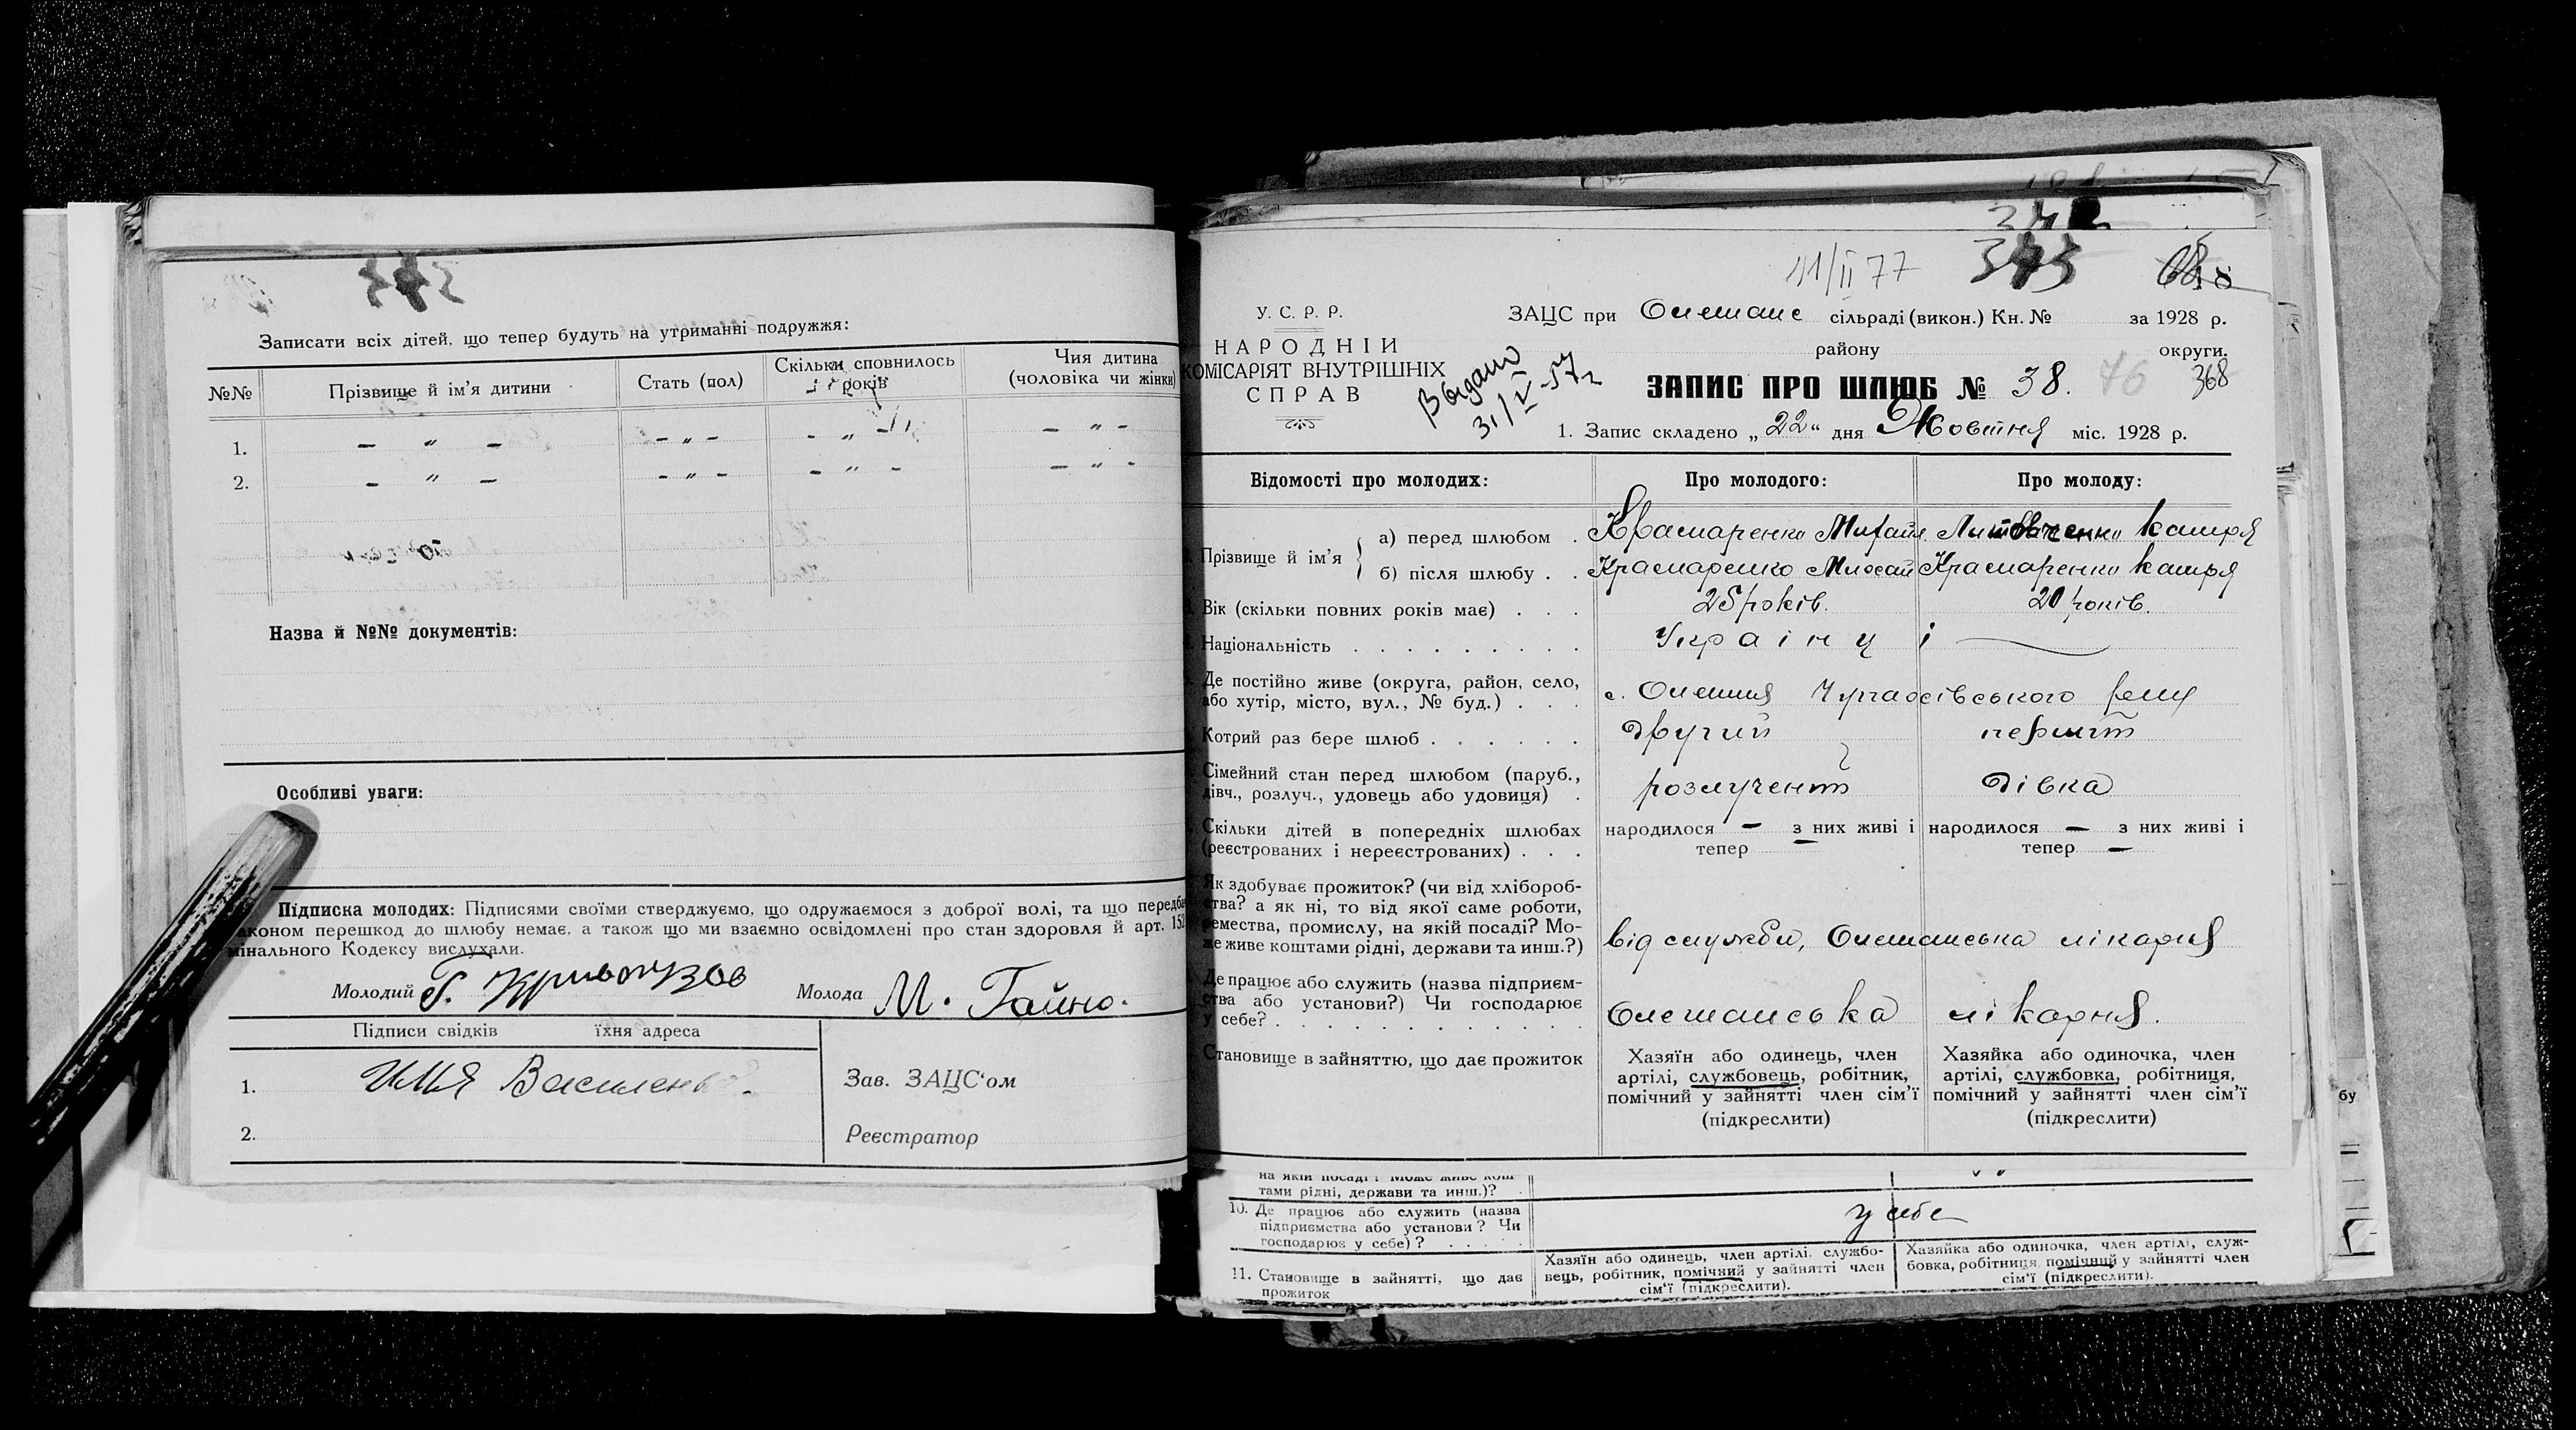 342
Записати всіх дітей, що тепер будуть на утриманні подружжя:
№№ Прізвище й ім’я дитини Стать (пол) Скільки сповнилось років Чия дитина (чоловіка чи жінки)
1. - „ - - „ - - „ - - „ -
2. - „ - - „ - - „ - - „ -
Назва й №№ документів:
Особливі уваги:
Підписка молодих: Підписями своїми стверджуємо, що одружаємося з доброї волі, та що передба
аконом перешкод до шлюбу немає, а також що ми взаємно освідомлені про стан здоровля й арт. 152
мінального Кодексу вислухали.
Молодий Молода М. Гайно.
Підписи свідків їхня адреса
1. Илля Василенко
Зав. ЗАЦС‘ом
2.
Реєстратор
342
11/II 77 343
У. С. Р. Р.
НАРОДНІЙ
КОМІСАРІЯТ ВНУТРІШНІХ
СПРАВ
Выдано
31/V-57 г
ЗАЦС при Олешанс сільраді (викон.) Кн. № за 1928 р.
району округи.
ЗАПИС ПРО ШЛЮБ № 38. 76 368
1. Запис складено „22“ дня Жовтня міс. 1928 р.
Відомості про молодих: Про молодого: Про молоду:
Прізвище й ім’я
а) перед шлюбом . Крамаренко Михайл Литовченко Катря
б) після шлюбу . . Крамаренко Михайл Крамаренко Катря
Вік (скільки повних років має) . . . 25 років. 20 років.
Національність . . . . . . . . . Українці
Де постійно живе (округа, район, село,
або хутір, місто, вул., № буд.) . . . с. Олешня
Котрий раз бере шлюб . . . . . . другий перший
Сімейний стан перед шлюбом (паруб.,
дівч., розлуч., удовець або удовиця) . розлучений дівка
Скільки дітей в попередніх шлюбах
(реєстрованих і нереєстрованих) . . .
народилося — з них живі і
тепер —
народилося — з них живі і
тепер —
Як здобуває прожиток? (чи від хлібороб-
ства? а як ні, то від якої саме роботи,
ремества, промислу, на якій посаді? Мо-
же живе коштами рідні, держави та инш.?)
від служби, Олешанська лікарня
Де працює або служить (назва підприєм-
ства або установи?) Чи господарює
у себе? . . . . . . . . . . . .
Олешанська лікарня.
Становище в зайняттю, що дає прожиток
Хазяїн або одинець, член
артілі, службовець, робітник,
помічний у зайнятті член сім’ї
(підкреслити)
Хазяйка або одиночка, член
артілі, службовка, робітниця,
помічний у зайнятті член сім’ї
(підкреслити)
на якій посаді? Може живе кош-
тами рідні, держави та инш.)?
10. Де працює або служить (назва
підприємства або установи? Чи
господарює у себе)? . . . . .
у себе
11. Становище в зайнятті, що дає
прожиток
Хазяїн або одинець, член артілі, службо-
вець, робітник, помічний у зайнятті член
сім‘ї (підкреслити).
Хазяйка або одиночка, член артілі, служ-
бовка, робітниця, помічний у зайнятті член
сім‘ї (підкреслити).
бу